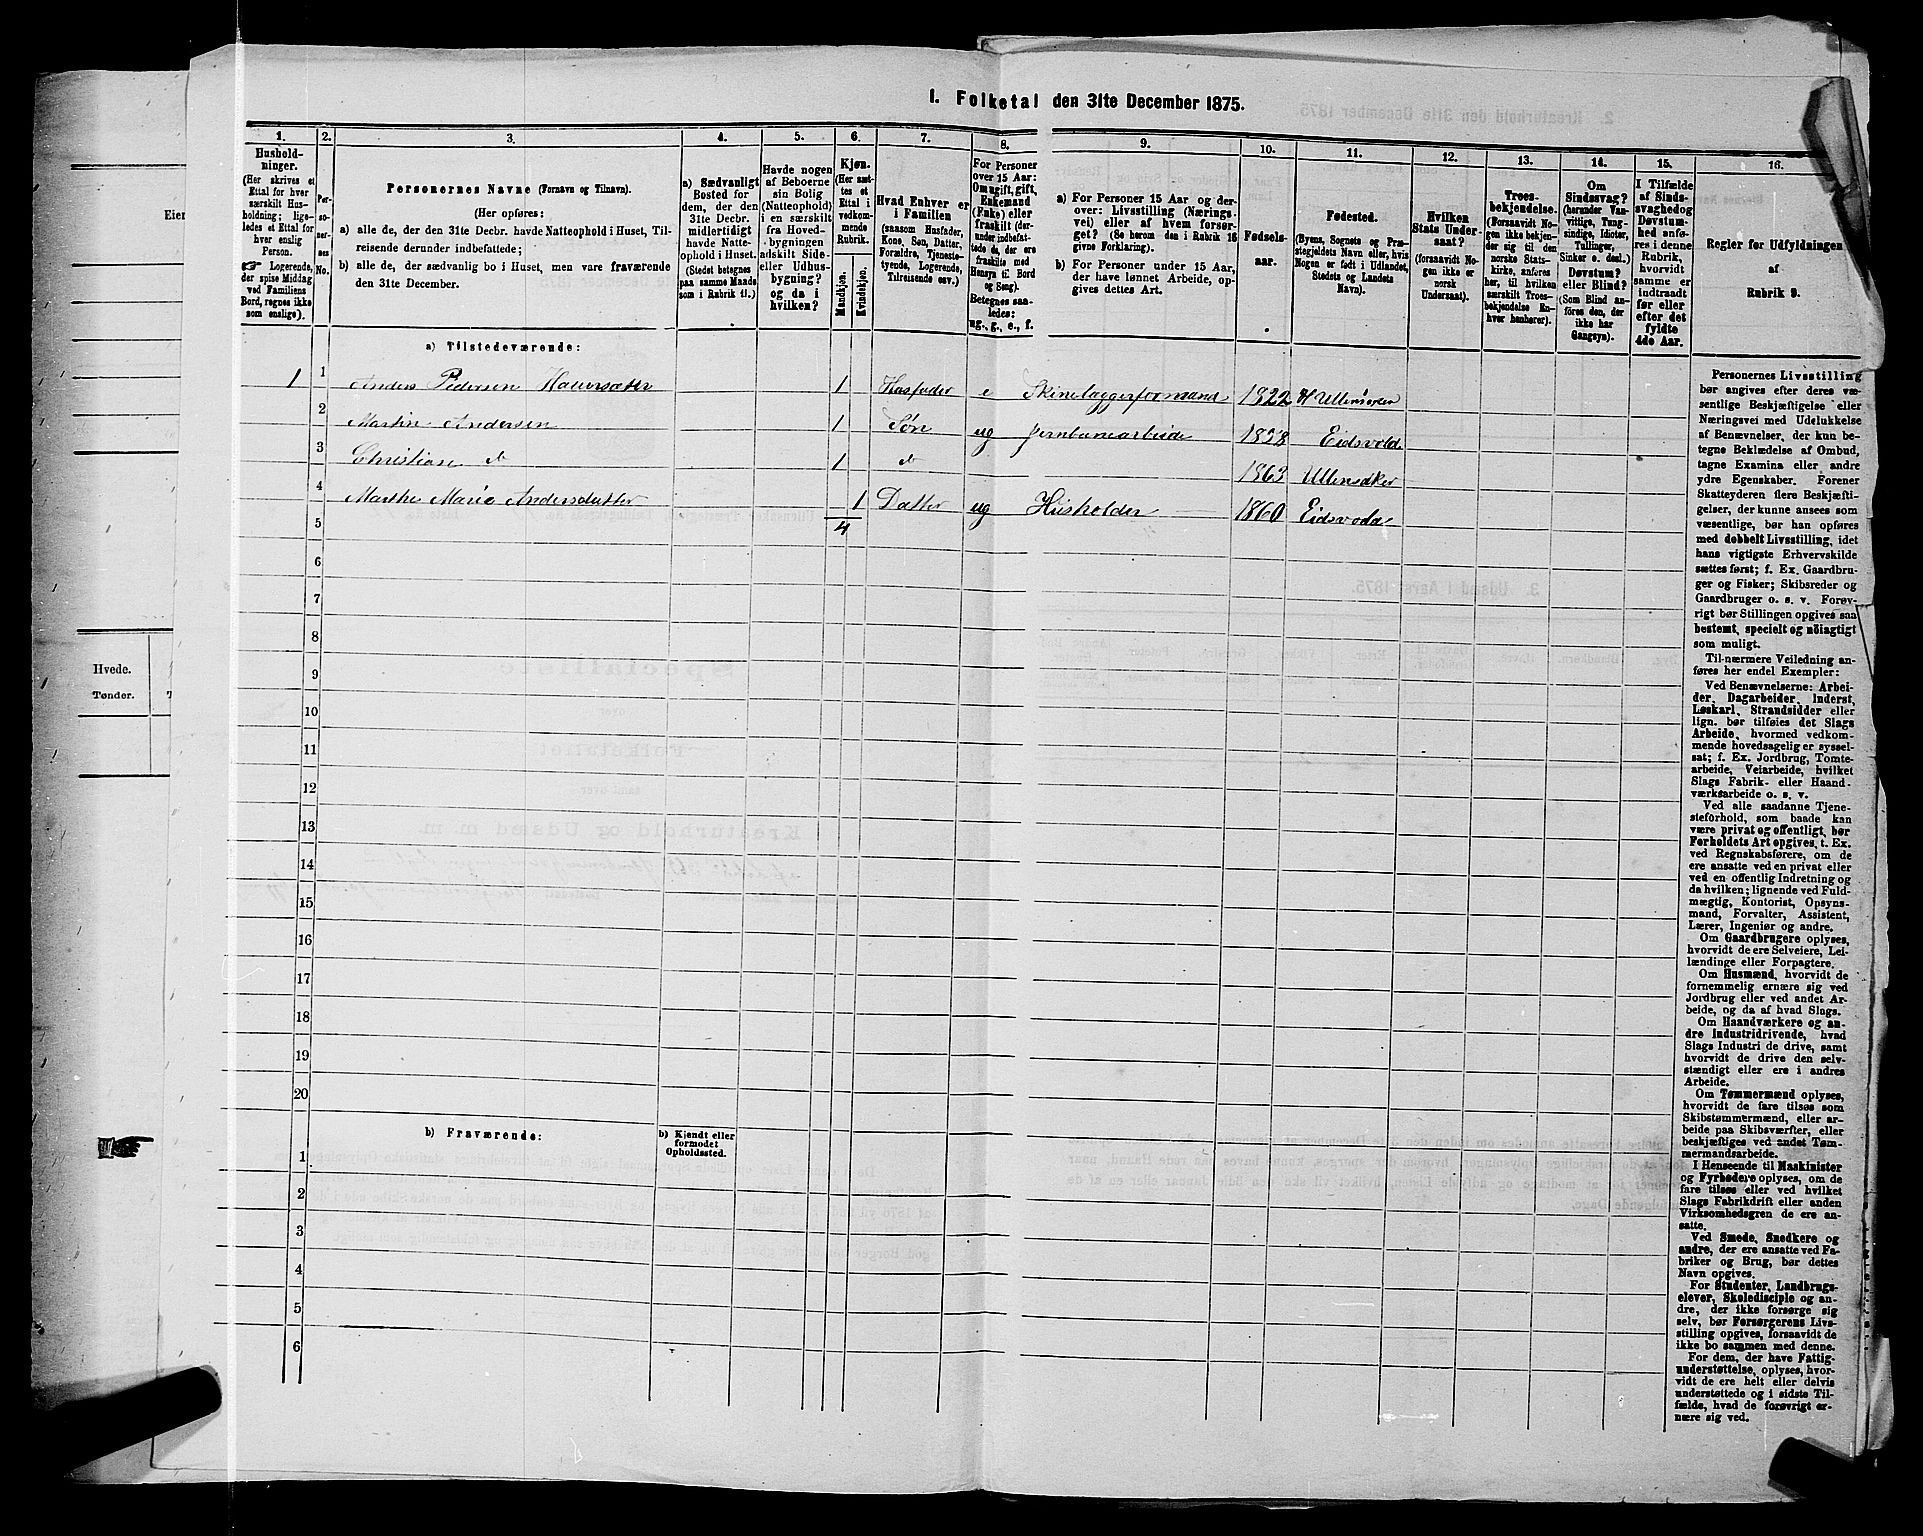 1. Folketal den 31te December 1875.
1.
Hushold-
ninger.
(Her skrives et
Ettal for hver
særskilt Hus-
holdning; lige-
ledes et Ettal for
hver enslig
Person.
☞ Logerende,
der spise Middag
ved Familiens
Bord, regnes ikke
som enslige).
2.
Per-
so-
ner-
nes
No.
3.
Personernes Navne (Fornavn og Tilnavn).
(Her opføres:
a) alle de, der den 31te Decbr. havde Natteophold i Huset, Til-
reisende derunder indbefattede;
b) alle de, der sædvanlig bo i Huset, men vare fraværende
den 31te December.
4.
a) Sædvanligt
Bosted for
dem, der den
31te Decbr.
midlertidigt
havde Natte-
ophold i Huset.
(Stedet betegnes
paa samme Maade
som i Rubrik 11.)
5.
Havde nogen
af Beboerne
sin Bolig
(Natteophold)
i en særskilt
fra Hoved-
bygningen
adskilt Side-
eller Udhus-
bygning?
og da i
hvilken?
6.
Kjøn.
(Her sæt-
tes et
Ettal i
vedkom-
mende
Rubrik.
Mandkjøn.
Kvindekjøn.
7.
Hvad Enhver er
i Familien
(saasom Husfader,
Kone, Søn, Datter,
Forældre, Tjeneste-
tyende, Logerende,
Tilreisende osv.)
8.
For Personer
over 15 Aar:
Om ugift, gift,
Enkemand
(Enke) eller
fraskilt (der-
under indbefat-
tede de, der ere
fraskilte med
Hensyn til Bord
og Seng).
Betegnes saa-
ledes:
ug., g., e., f.
9.
a) For Personer 15 Aar og der-
over: Livsstilling (Nærings-
vei) eller af hvem forsør-
get? (Se herom den i Rubrik 16
givne Forklaring).
b) For Personer under 15 Aar,
der have lønnet Arbeide, op-
gives dettes Art.
10.
Fødsels-
aar.
11.
Fødested.
(Byens, Sognets og Præ-
stegjeldets Navn eller, hvis
Nogen er født i Udlandet,
Stedets og Landets
Navn).
12.
Hvilken
Stats Under-
saat?
(forsaavidt No-
gen ikke er
norsk
Undersaat).
13.
Troes-
bekjendelse.
(Forsaavidt No-
gen ikke bekjen-
der sig til den
norske Stats-
kirke, anføres
her, til hvilken
særskilt Troes-
bekjendelse En-
hver henhører).
14.
Om
Sindssvag?
(herunder Van-
vittige, Tung-
sindige, Idioter,
Tullinger,
Sinker o. desl.)
Døvstum?
eller Blind?
(Som Blind an-
føres den, der
ikke har
Gangsyn).
15.
I Tilfælde
af Sinds-
svaghed og
Døvstum-
hed anfø-
res i denne
Rubrik,
hvorvidt
samme er
indtraadt
før eller
efter det
fyldte
4de Aar.
16.
Regler for Udfyldningen
af
Rubrik 9.
a) Tilstedeværende:
1 1 Anders Pedersen Hauersæter 1 Husfader e Skinelæggerformand 1822 Ullensaker
2 Martin Andersen 1 Søn ug Jernbanearbeide 1858 Eidsvold
3 Christian do 1 do 1863 Ullensaker
4 Marthe Marie Andersdatter 1 Datter ug Husholder 1860 Eidsvold
5 4
6
7
8
9
10
11
12
13
14
15
16
17
18
19
20
b) Fraværende:
b) Kjendt eller
formodet
Opholdssted.
1
2
3
4
5
6
Personernes Livsstilling
bør angives efter deres væ-
sentlige Beskjæftigelse eller
Næringsvei med Udelukkelse
af Benævnelser, der kun be-
tegne Beklædelse af Ombud,
tagne Examina eller andre
ydre Egenskaber. Forener
Skatteyderen flere Beskjæfti-
gelser, der kunne ansees som
væsentlige, bør han opføres
med dobbelt Livsstilling, idet
hans vigtigste Erhvervskilde
sættes først; f. Ex. Gaardbru-
ger og Fisker; Skibsreder og
Gaardbruger o. s. v. Forøv-
rigt bør Stillingen opgives saa
bestemt, specielt og nöiagtigt
som muligt.
Til nærmere Veiledning an-
føres her endel Exempler:
Ved Benævnelserne: Arbei-
der, Dagarbeider, Inderst,
Løskarl, Strandsidder eller
lign. bør tilføies det Slags
Arbeide, hvormed vedkom-
mende hovedsagelig er syssel-
sat; f. Ex. Jordbrug, Tomte-
arbeide, Veiarbeide, hvilket
Slags Fabrik- eller Haand-
værksarbeide o. s. v.
Ved alle saadanne Tjene-
steforhold, som baade kan
være privat og offentligt, bør
Forholdets Art opgives, t. Ex.
ved Regnskabsførere, om de
ere ansatte ved en privat eller
ved en offentlig Indretning og
da hvilken; lignende ved Fuld-
mægtig, Kontorist, Opsyns-
mand, Forvalter, Assistent,
Lærer, Ingeniør og andre.
Om Gaardbrugere oplyses,
hvorvidt de ere Selveiere, Lei-
lændinge eller Forpagtere.
Om Husmænd, hvorvidt de
fornemmelig ernære sig ved
Jordbrug eller ved andet Ar-
beide, og da af hvad Slags.
Om Haandværkere og an-
dre Industridrivende, hvad
Slags Industri de drive, samt
hvorvidt de drive den selv-
stændigt eller ere i andres
Arbeide.
Om Tømmermænd oplyses,
hvorvidt de fare tilsøs som
Skibstømmermænd, eller ar-
beide paa Skibsværfter, eller
beskjæftiges ved andet Tøm-
mermandsarbeide.
I Henseende til Maskinister
og Fyrbødere oplyses, om de
fare tilsøs eller ved hvilket
Slags Fabrikdrift eller anden
Virksomhedsgren de ere an-
satte.
Ved Smede, Snedkere og
andre, der ere ansatte ved Fa-
briker og Brug, bør dettes
Navn opgives.
For Studenter, Landbrugs-
elever, Skoledisciple og an-
dre, der ikke forsørge sig
selv, bør Forsørgerens Livs-
stilling opgives, forsaavidt de
ikke bo sammen med denne.
For dem, der have Fattig-
understøttelse, oplyses, hvor-
vidt de ere helt eller delvis
understøttede og i sidste Til-
fælde, hvad de forøvrigt er-
nære sig ved.
Eier
Hvede.
Tønder.